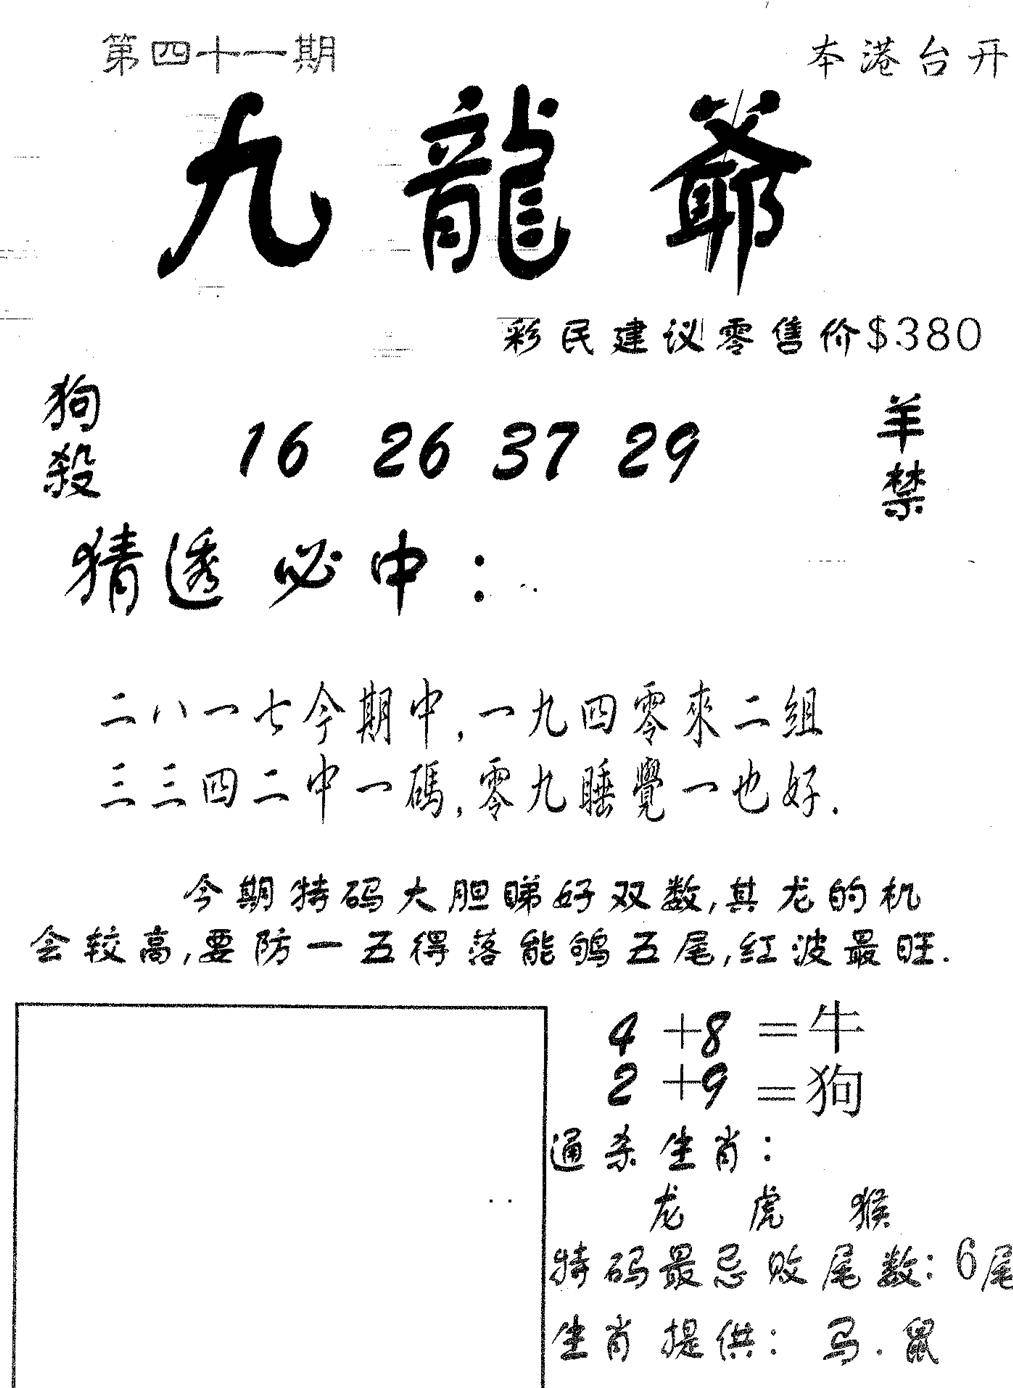 第四十一期
本港台开
九龍爺
彩民建议零售价$380
狗殺
16 26 37 29
羊禁
猜透必中：
二八一七今期中,一九四零來二組
三三四二中一碼,零九睡覺一也好.
今期特码大胆睇好双数,其龙的机
会较高,要防一五得落能鸲五尾,红波最旺.
4+8=牛
2+9=狗
通杀生肖：
龙 虎 猴
特码最忌败尾数：6尾
生肖提供：马.鼠